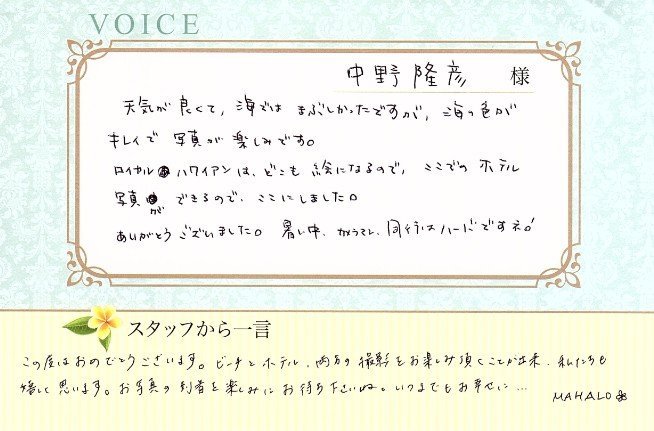 VOICE
中野隆彦 様
天気が良くて、海ではまぶしかったですが、海の色が
キレイで写真が楽しみです。
ロイヤルハワイアンは、どこも絵になるので、ここでのホテル
写真ができるので、ここにしました。
ありがとうございました。暑い中、カメラマン、同行はハードですネ!
スタッフから一言
この度はおめでとうございます。ビーチとホテル、両方の撮影をお楽しみ頂くことが出来、私たちも
嬉しく思います。お写真の到着を楽しみにお待ち下さいね。いつまでもお幸せに…
MAHALO